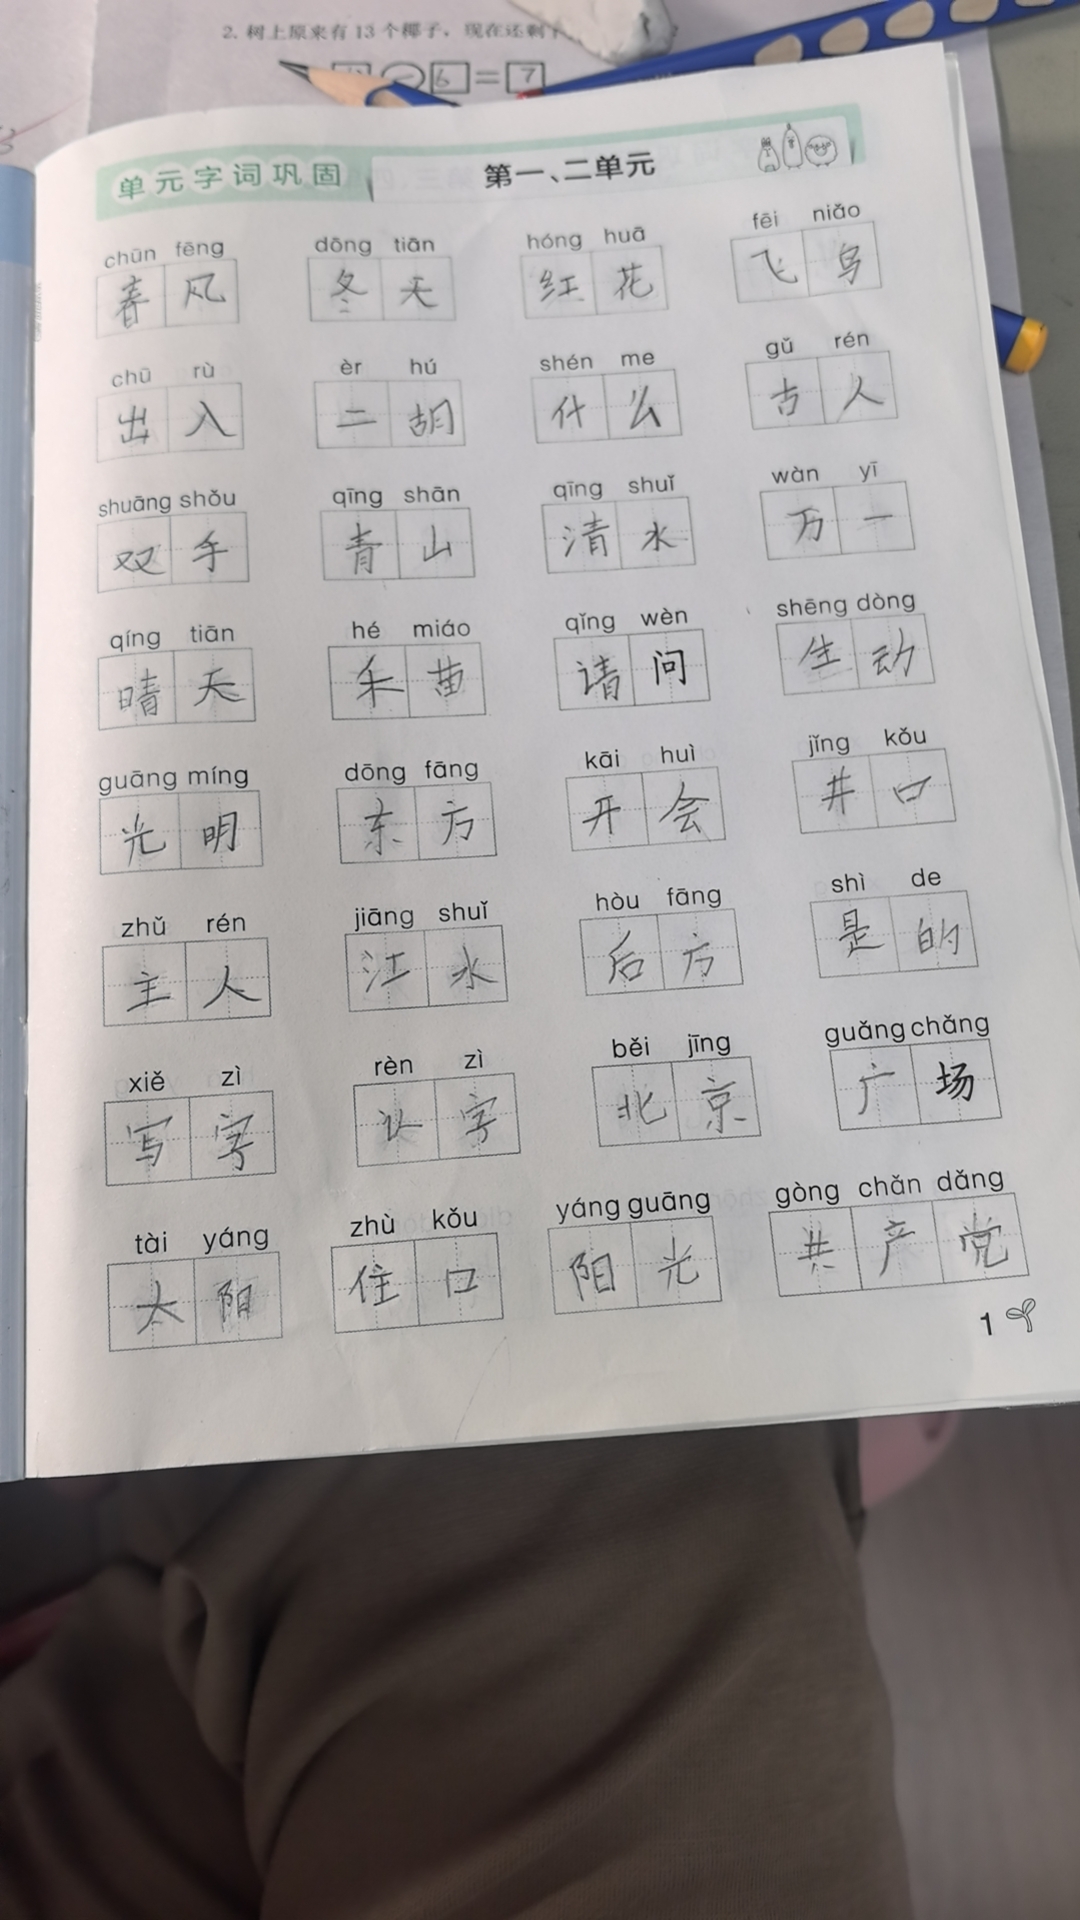 2. 树上原来有13个椰子，现在还剩
6 = 7
单元字词巩固 第一、二单元
chūn fēng dōng tiān hóng huā fēi niǎo
春风 冬天 红花 飞鸟
chū rù èr hú shén me gǔ rén
出入 二胡 什么 古人
shuāng shǒu qīng shān qīng shuǐ wàn yī
双手 青山 清水 万一
qíng tiān hé miáo qǐng wèn shēng dòng
晴天 禾苗 请问 生动
guāng míng dōng fāng kāi huì jǐng kǒu
光明 东方 开会 井口
zhǔ rén jiāng shuǐ hòu fāng shì de
主人 江水 后方 是的
xiě zì rèn zì běi jīng guǎng chǎng
写字 认字 北京 广场
tài yáng zhù kǒu yáng guāng gòng chǎn dǎng
太阳 住口 阳光 共产党
1